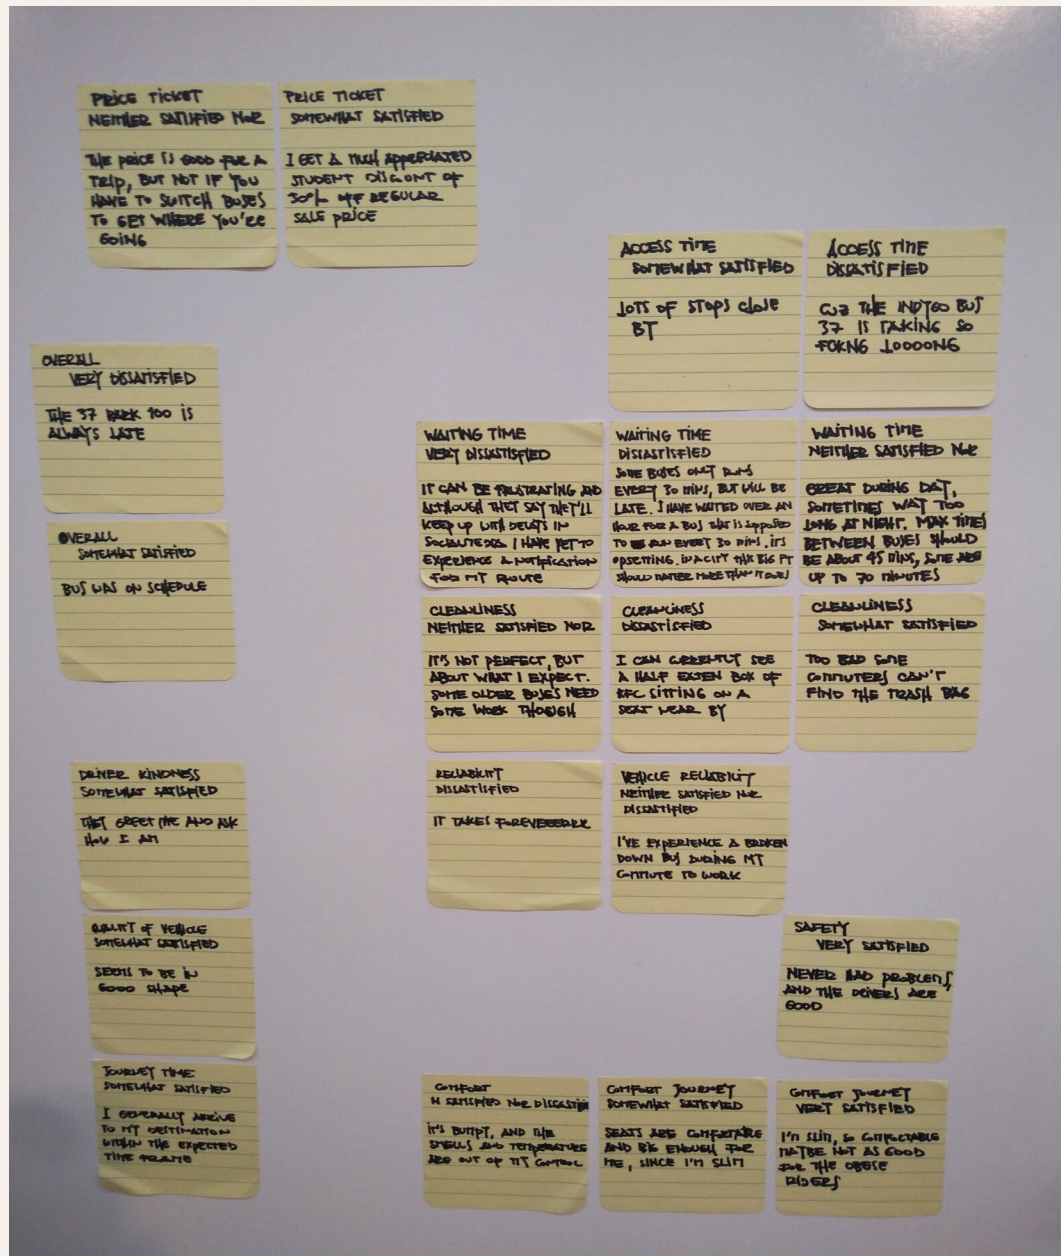 PRICE TICKET
NEITHER SATISFIED NOR
THE PRICE IS GOOD FOR A
TRIP, BUT NOT IF YOU
HAVE TO SWITCH BUSES
TO GET WHERE YOU'RE
GOING
PRICE TICKET
SOMEWHAT SATISFIED
I GET A MUCH APPRECIATED
STUDENT DISCONT OF
30% OFF REGULAR
SALE PRICE
ACCESS TIME
SOMEWHAT SATISFIED
LOTS OF STOPS CLOSE
BY
ACCESS TIME
DISSATISFIED
CUZ THE INDYGO BUS
37 IS TAKING SO
FOKNG LOOOONG
OVERALL
VERY DISSATISFIED
THE 37 PARK 100 IS
ALWAYS LATE
WAITING TIME
VERY DISSASTISFIED
IT CAN BE FRUSTRATING AND
ALTHOUGH THEY SAY THEY'LL
KEEP UP WITH DELAYS IN
I HAVE YET TO
EXPERIENCE A NOTIFICATION
FOR MY ROUTE
WAITING TIME
DISSASTISFIED
SOME BUSES ONLY RUNS
EVERY 30 MINS, BUT WILL BE
LATE. I HAVE WAITED OVER AN
HOUR FOR A BUS THAT IS SUPPOSED
TO RUN EVERY 30 MINS. IT'S
UPSETTING. IN A CITY THIS BIG PT
SHOULD MATTER MORE THAN IT DOES
WAITING TIME
NEITHER SATISFIED NOR
GREAT DURING DAY,
SOMETIMES WAY TOO
LONG AT NIGHT. MAX TIMES
BETWEEN BUSES SHOULD
BE ABOUT 45 MINS, SOME ARE
UP TO 70 MINUTES
OVERALL
SOMEWHAT SATISFIED
BUS WAS ON SCHEDULE
CLEANLINESS
NEITHER SATISFIED NOR
IT'S NOT PERFECT, BUT
ABOUT WHAT I EXPECT.
SOME OLDER BUSES NEED
SOME WORK THOUGH
CLEANLINESS
DISSASTISFIED
I CAN CURRENTLY SEE
A HALF EATEN BOX OF
KFC SITTING ON A
SEAT NEAR BY
CLEANLINESS
SOMEWHAT SATISFIED
TOO BAD SOME
COMMUTERS CAN'T
FIND THE TRASH BAG
DRIVER KINDNESS
SOMEWHAT SATISFIED
THEY GREET ME AND ASK
HOW I AM
RELIABILITY
DISSASTISFIED
IT TAKES FOREVEEERRR
VEHICLE RELIABILITY
NEITHER SATISFIED NOR
DISSASTISFIED
I'VE EXPERIENCE A BROKEN
DOWN BUS DURING MY
COMMUTE TO WORK
QUALITY OF VEHICLE
SOMEWHAT SATISFIED
SEEMS TO BE IN
GOOD SHAPE
SAFETY
VERY SATISFIED
NEVER HAD PROBLEMS,
AND THE DRIVERS ARE
GOOD
JOURNEY TIME
SOMEWHAT SATISFIED
I GENERALLY ARRIVE
TO MY DESTINATION
WITHIN THE EXPECTED
TIME FRAME
COMFORT
N SATISFIED NOR DISSASTISFI
IT'S BUMPY, AND THE
SMELLS AND TEMPERATURE
ARE OUT OF MY CONTROL
COMFORT JOURNEY
SOMEWHAT SATISFIED
SEATS ARE COMFORTABLE
AND BIG ENOUGH FOR
ME, SINCE I'M SLIM
COMFORT JOURNEY
VERY SATISFIED
I'M SLIM, SO COMFORTABLE
MAYBE NOT AS GOOD
FOR THE OBESE
RIDERS